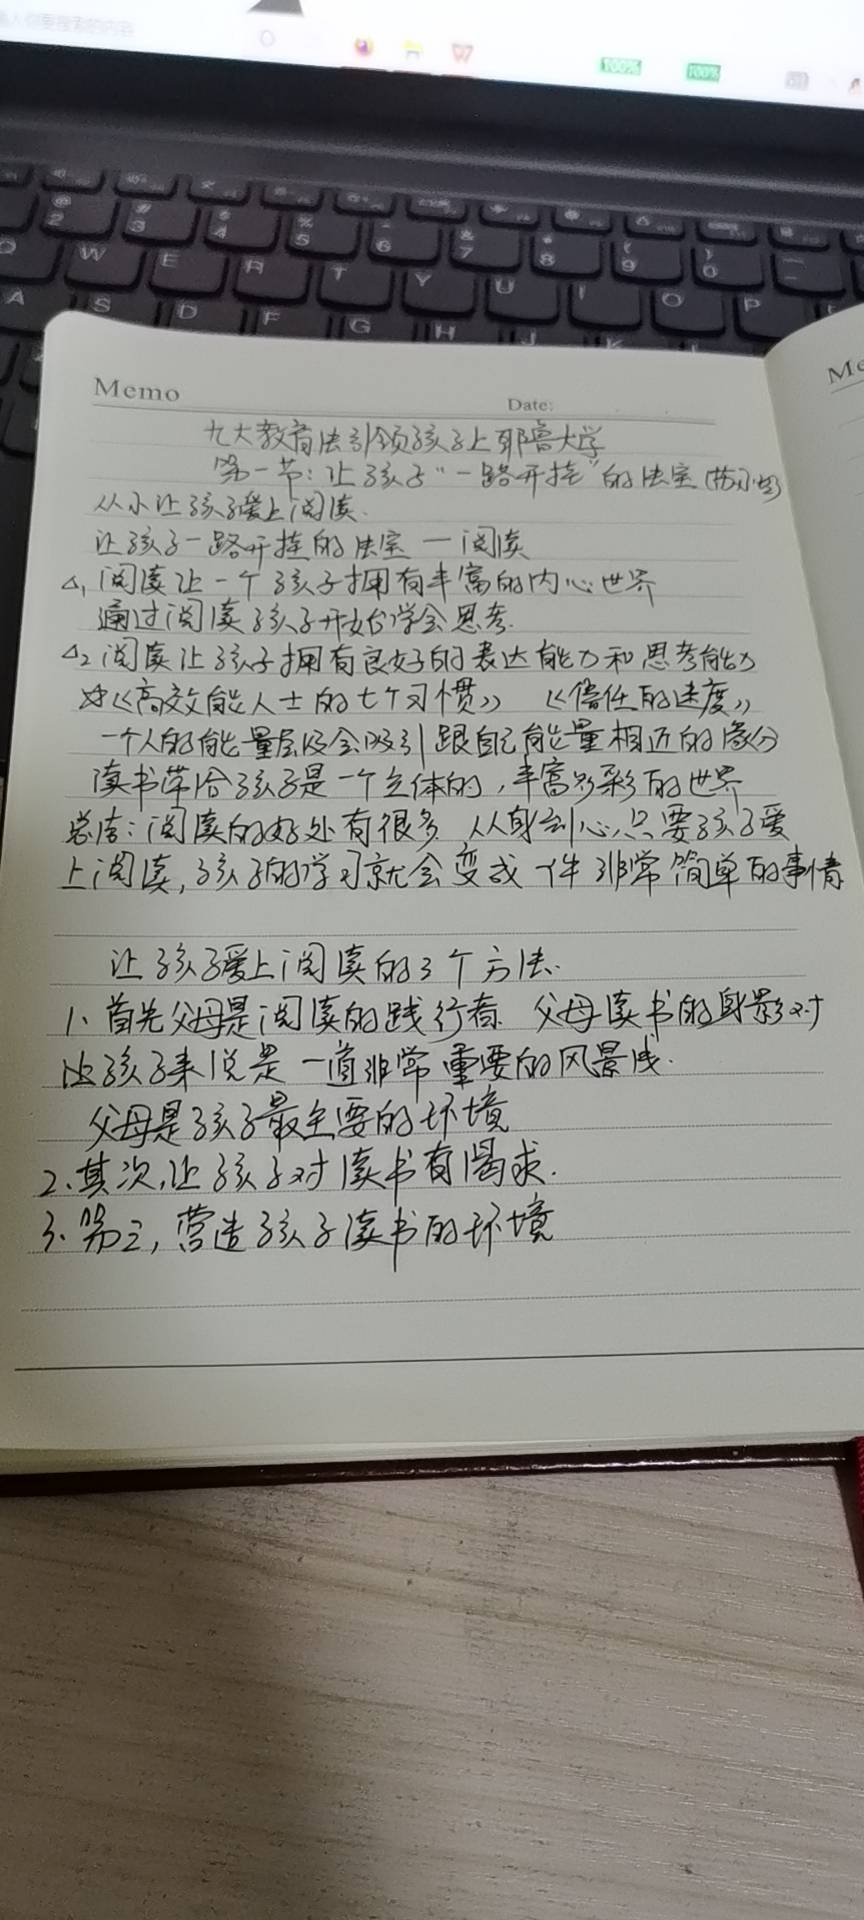 Memo
Date:
九大教育法引领孩子上耶鲁大学
第一节：让孩子“一路开挂”的法宝
从小让孩子爱上阅读.
让孩子一路开挂的法宝 — 阅读
△1 阅读让一个孩子拥有丰富的内心世界
通过阅读孩子开始学会思考.
△2 阅读让孩子拥有良好的表达能力和思考能力
《高效能人士的七个习惯》 《信任的速度》
一个人的能量层级会吸引跟自己能量相近的缘分
读书带给孩子是一个立体的，丰富多彩的世界
总结：阅读的好处有很多 从身到心，只要孩子爱
上阅读，孩子的学习就会变成一件非常简单的事情
让孩子爱上阅读的3个方法.
1、首先父母是阅读的践行者. 父母读书的身影对
孩子来说是一道非常重要的风景线.
父母是孩子最主要的环境
2、其次，让孩子对读书有渴求.
3、第三，营造孩子读书的环境
100%
100%
2
3
4
5
6
7
8
9
0
Q
W
E
R
T
Y
U
I
O
P
A
S
D
F
G
H
J
K